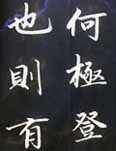 何極登
也則有